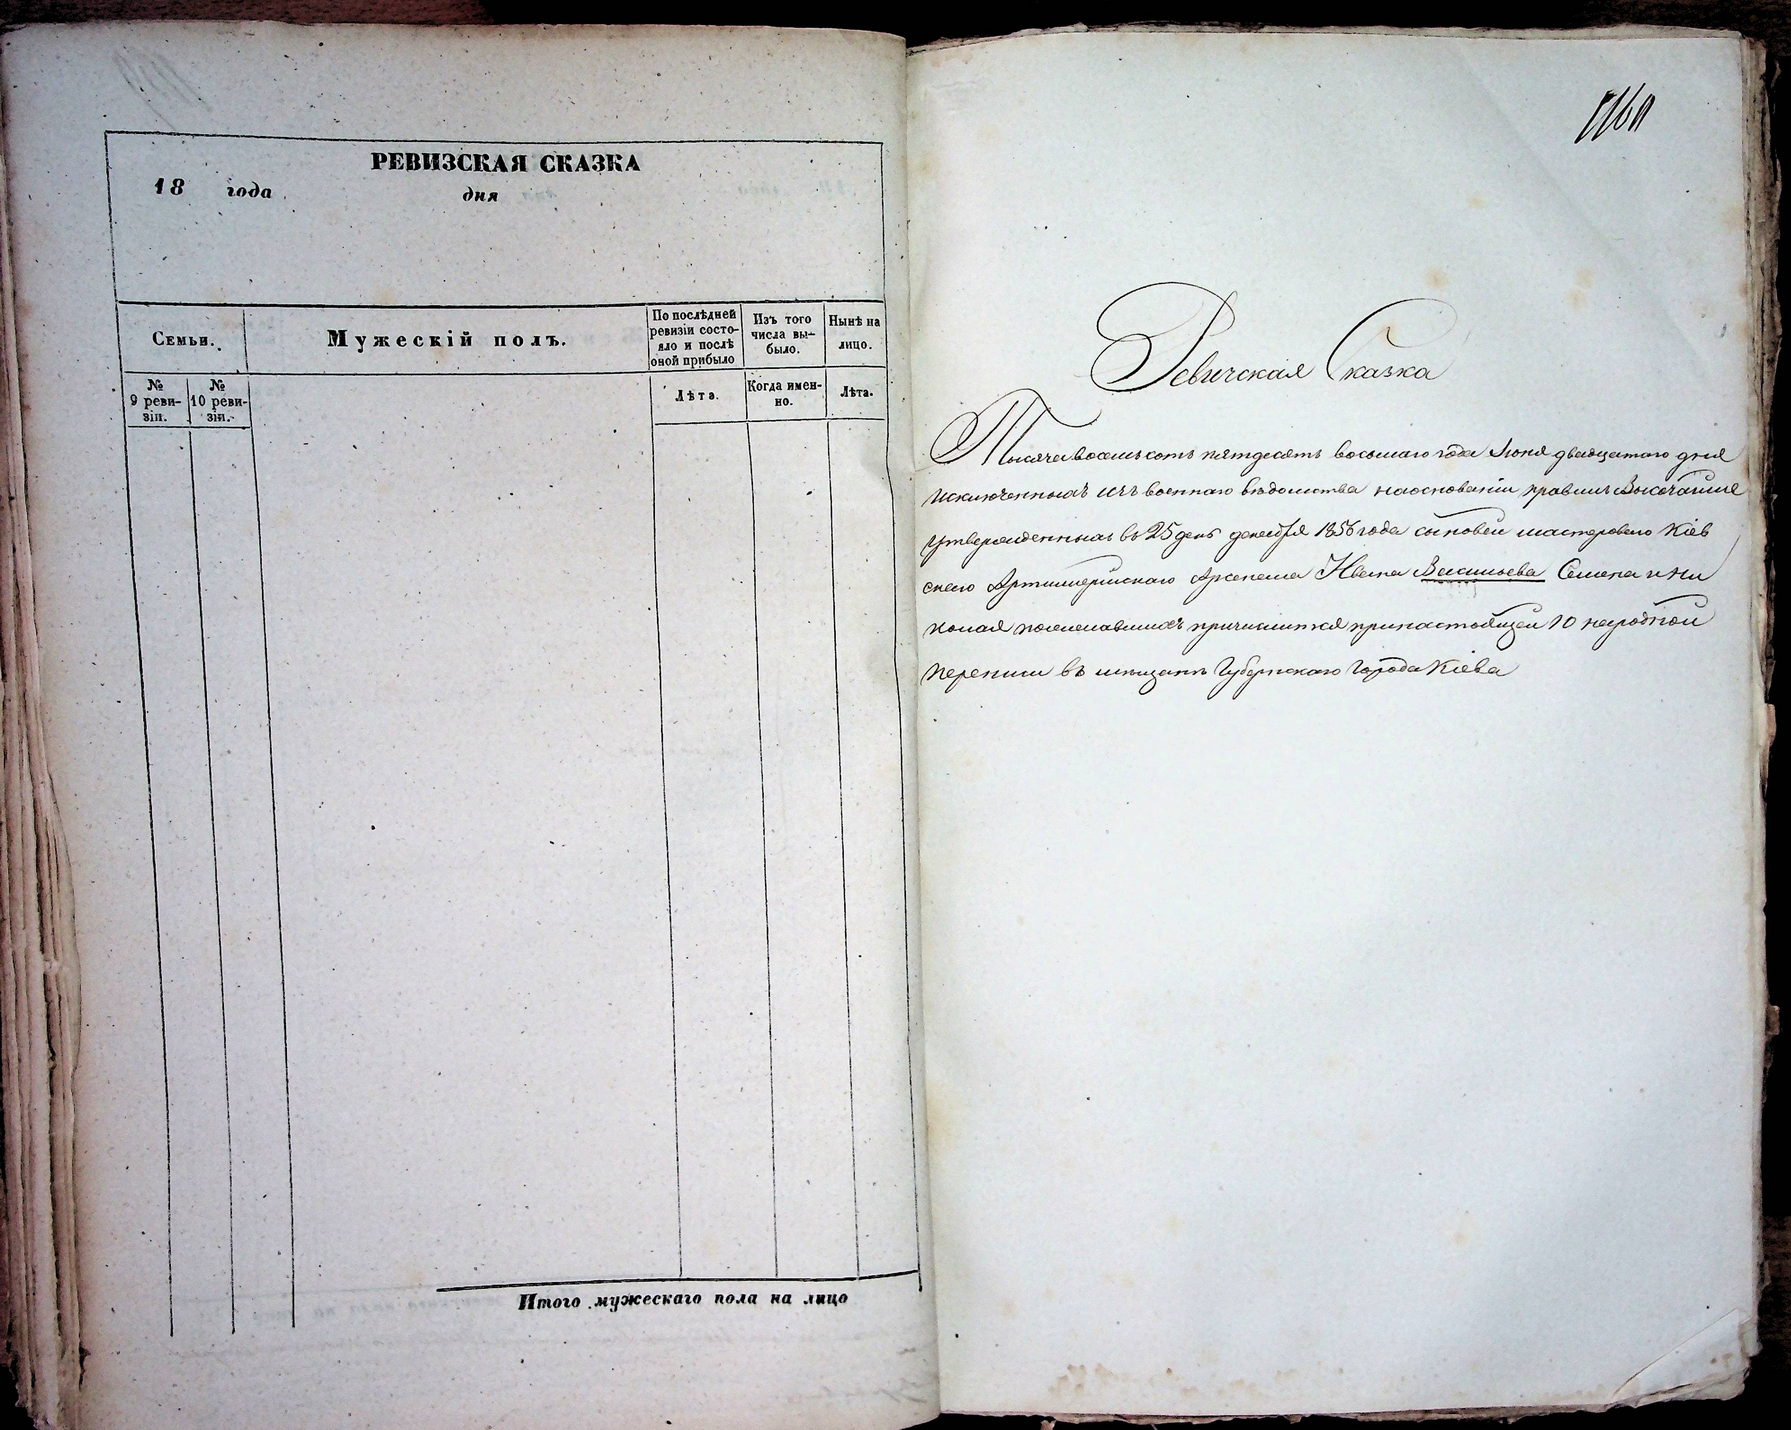 РЕВИЗСКАЯ СКАЗКА
18 года дня
Семьи.
Мужескій полъ.
По послѣдней ревизіи состо-
яло и послѣ оной прибыло
Изъ того числа вы-
было.
Нынѣ на лицо.
№ 9 реви-
зіи.
№ 10 реви-
зіи.
Лѣта.
Когда имен-
но.
Лѣта.
Итого мужескаго пола на лицо
Ревизская Сказка
Тысяча восемьсотъ пятдесятъ восьмаго года Іюня двадцатаго дня
исключенныхъ изъ военнаго вѣдомства наосновании правилъ Высочайше
утвержденныхъ въ 25 день декабря 1856 года сыновей мастероваго Кіев
скаго Артиллерійскаго Арсенала Ивана Васильева Семена и Ни
колая пожелавшихъ причислится принастоящей 10 народной
переписи въ мещане Губернскаго Города Кіева